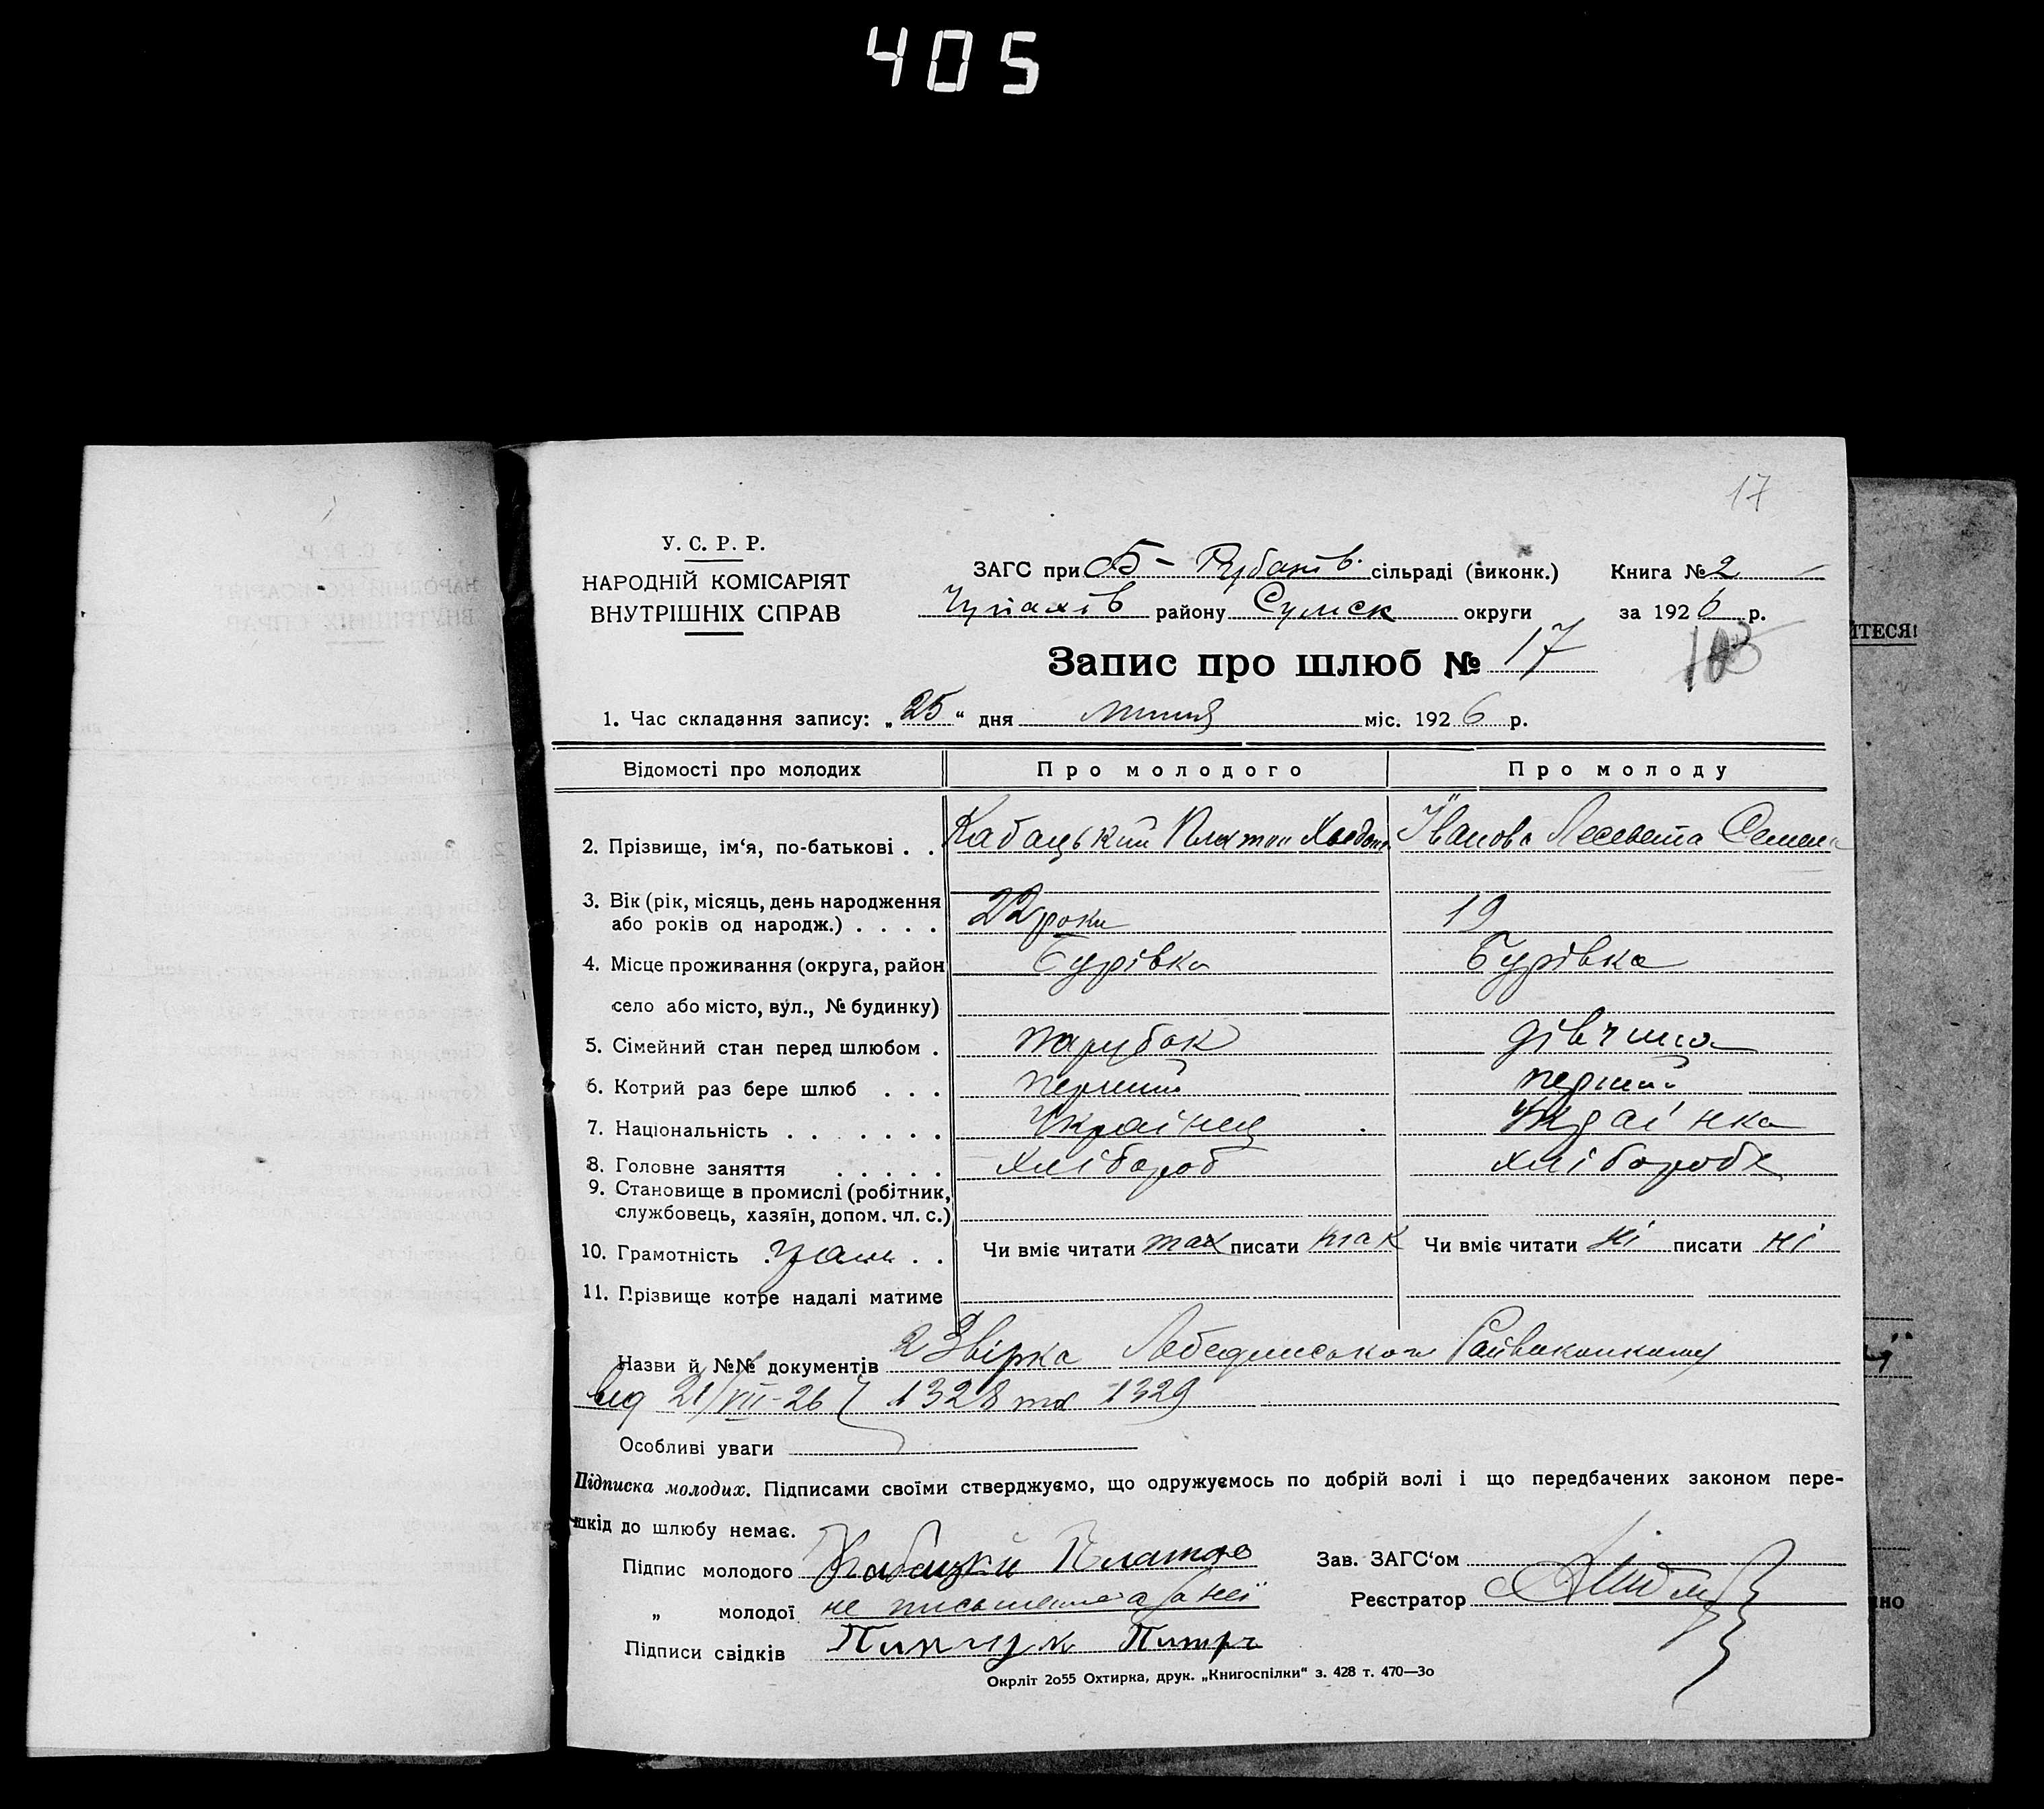 405
17
У. С. Р. Р.
НАРОДНІЙ КОМІСАРІЯТ
ВНУТРІШНІХ СПРАВ
ЗАГС при Б- Рубанів. сільраді (виконк.) Книга № 2
Чупахів району Сумск округи за 1926 р.
Запис про шлюб № 17
103
1. Час складання запису: „25“ дня липня міс. 1926 р.
Відомості про молодих Про молодого Про молоду
2. Прізвище, ім‘я, по-батькові . . Кабацький Платон Іванова Лесевета Семен
3. Вік (рік, місяць, день народження
або років од народж.) . . . . 22 роки 19
4. Місце проживання (округа, район Бурівка Бурівка
село або місто, вул., № будинку)
5. Сімейний стан перед шлюбом . парубок дівчина
6. Котрий раз бере шлюб . . . перший перший
7. Національність . . . . . . . Українец Украінка
8. Головне заняття . . . . . хлібороб хлібороб
9. Становище в промислі (робітник,
службовець, хазяїн, допом. чл. с.)
10. Грамотність . . . Чи вміє читати так писати так Чи вміє читати ні писати ні
11. Прізвище котре надалі матиме
Назви й №№ документів 2 Звірка Лебединського Райвиконкому
від 21/VII-26 1328 та 1329
Особливі уваги
Підписка молодих. Підписами своїми стверджуємо, що одружуємось по добрій волі і що передбачених законом пере-
шкід до шлюбу немає.
Підпис молодого Кабацкий Платон Зав. ЗАГС‘ом
„ молодої не письменна за неї Реєстратор
Підписи свідків
Окрліт 2о55 Охтирка, друк. „Книгоспілки“ з. 428 т. 470—3о
ЙТЕСЯ!
но